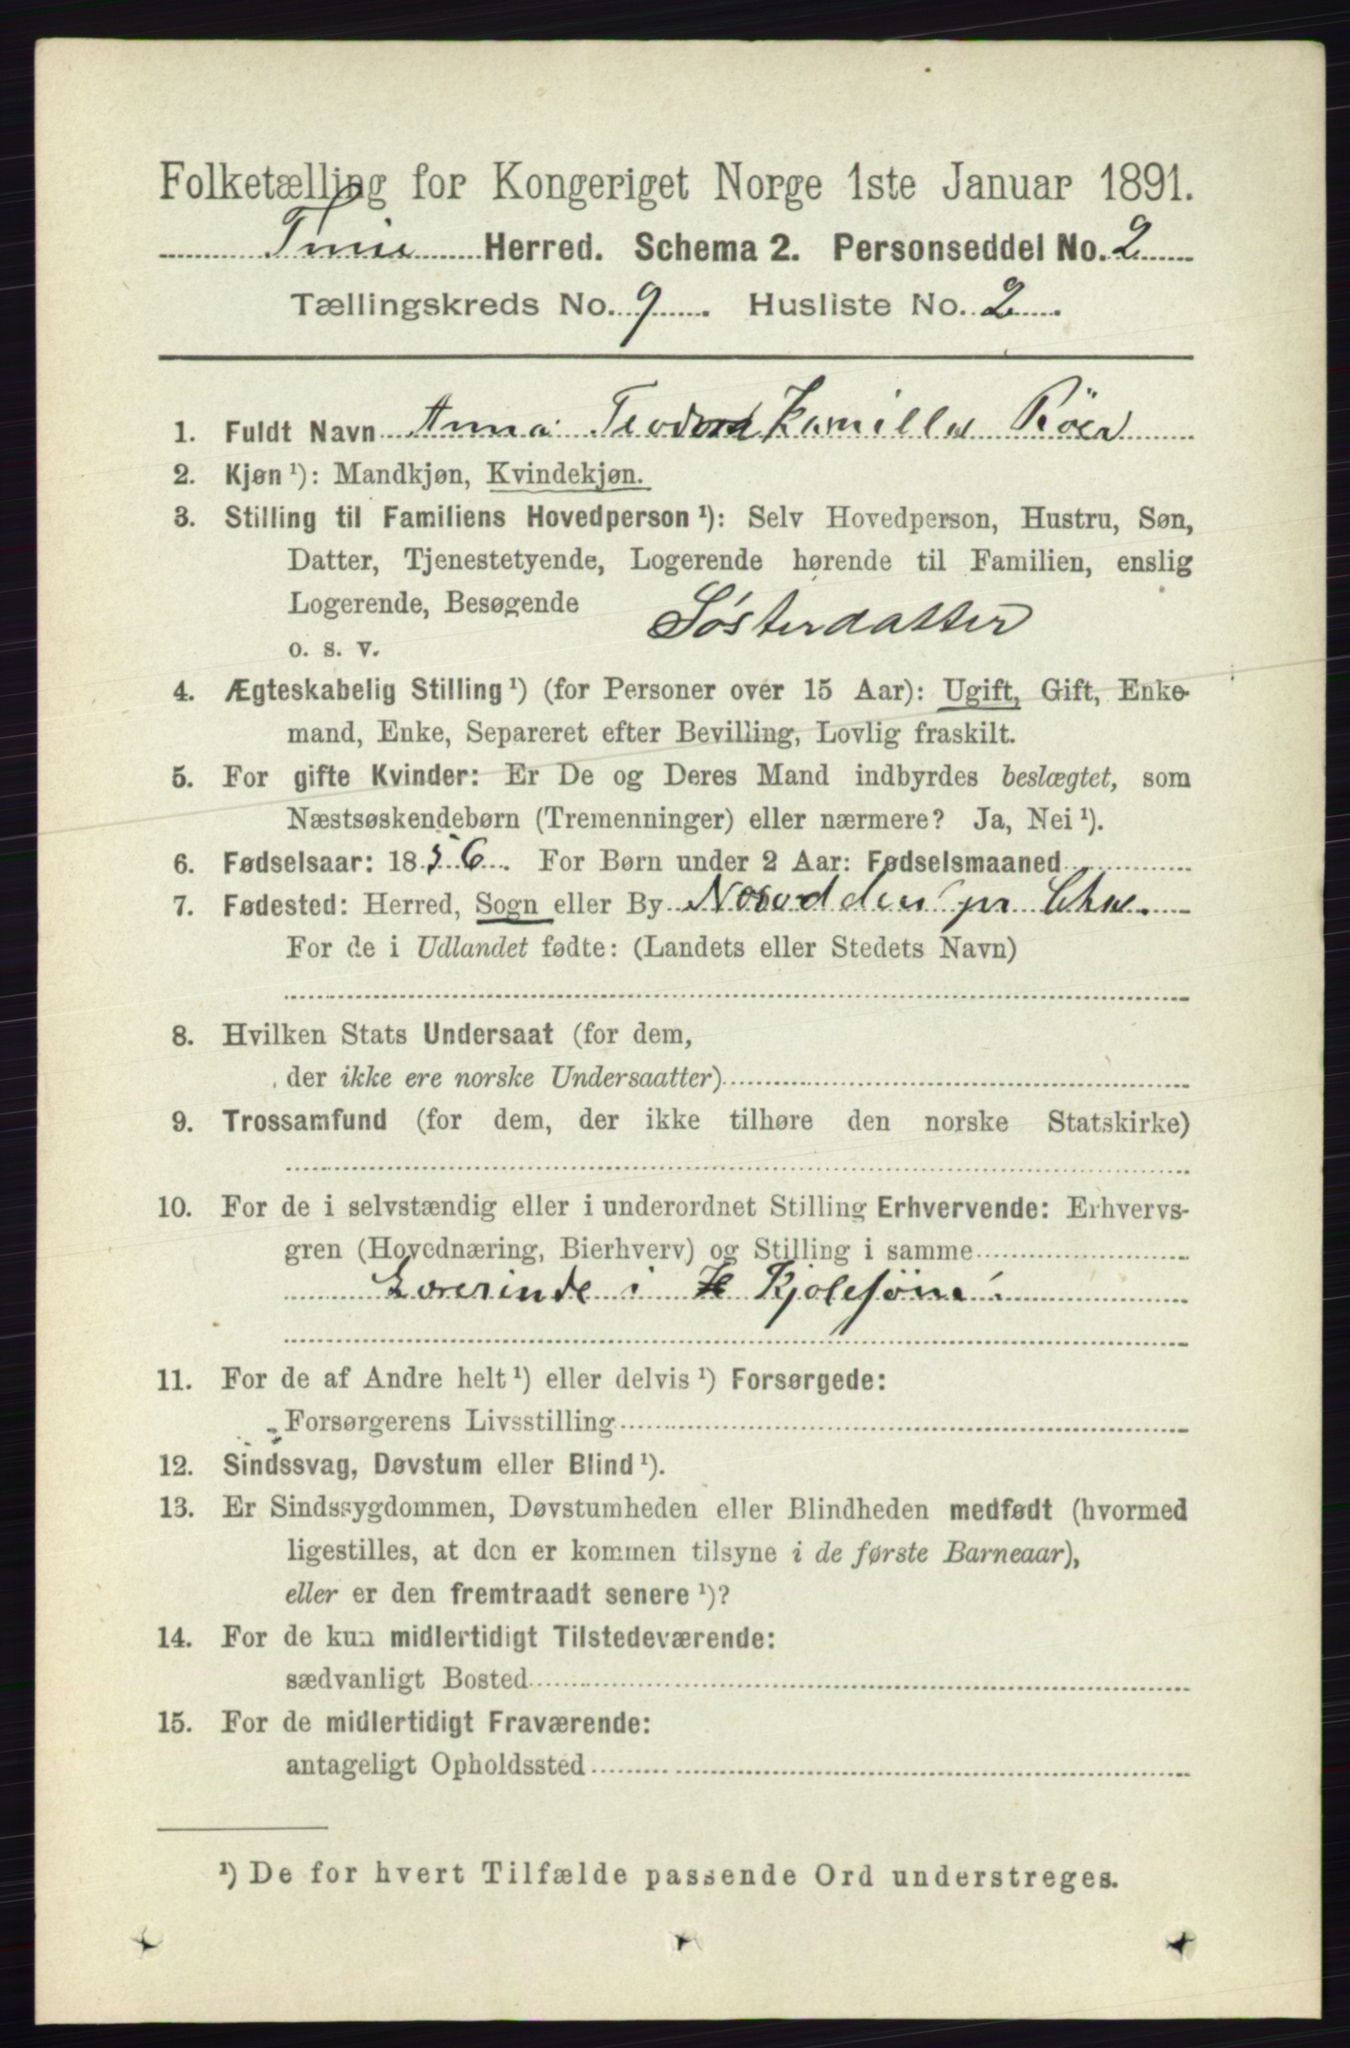 Folketælling for Kongeriget Norge 1ste Januar 1891.
Herred. Schema 2. Personseddel No. 2
Tællingskreds No. 9. Husliste No. 2.
1. Fuldt Navn Anna Teodora Kamilla Röer
2. Kjøn ¹): Mandkjøn, Kvindekjøn.
3. Stilling til Familiens Hovedperson ¹): Selv Hovedperson, Hustru, Søn,
Datter, Tjenestetyende, Logerende hørende til Familien, enslig
Logerende, Besøgende Søsterdatter
o. s. v.
4. Ægteskabelig Stilling ¹) (for Personer over 15 Aar): Ugift, Gift, Enke-
mand, Enke, Separeret efter Bevilling, Lovlig fraskilt.
5. For gifte Kvinder: Er De og Deres Mand indbyrdes beslægtet, som
Næstsøskendebørn (Tremenninger) eller nærmere? Ja, Nei ¹).
6. Fødselsaar: 1856. For Børn under 2 Aar: Fødselsmaaned
7. Fødested: Herred, Sogn eller By Nesodden pr Chra.
For de i Udlandet fødte: (Landets eller Stedets Navn)
8. Hvilken Stats Undersaat (for dem,
der ikke ere norske Undersaatter)
9. Trossamfund (for dem, der ikke tilhøre den norske Statskirke)
10. For de i selvstændig eller i underordnet Stilling Erhvervende: Erhvervs-
gren (Hovednæring, Bierhverv) og Stilling i samme
Lærerinde i Kjolesöm.
11. For de af Andre helt ¹) eller delvis ¹) Forsørgede:
Forsørgerens Livsstilling
12. Sindssvag, Døvstum eller Blind ¹).
13. Er Sindssygdommen, Døvstumheden eller Blindheden medfødt (hvormed
ligestilles, at den er kommen tilsyne i de første Barneaar),
eller er den fremtraadt senere ¹)?
14. For de kun midlertidigt Tilstedeværende:
sædvanligt Bosted
15. For de midlertidigt Fraværende:
antageligt Opholdssted
¹) De for hvert Tilfælde passende Ord understreges.